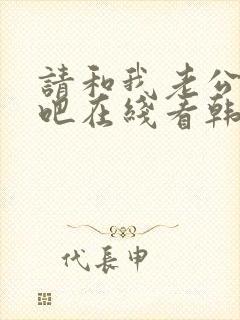 請和我老公
吧在綫看韩
代長申